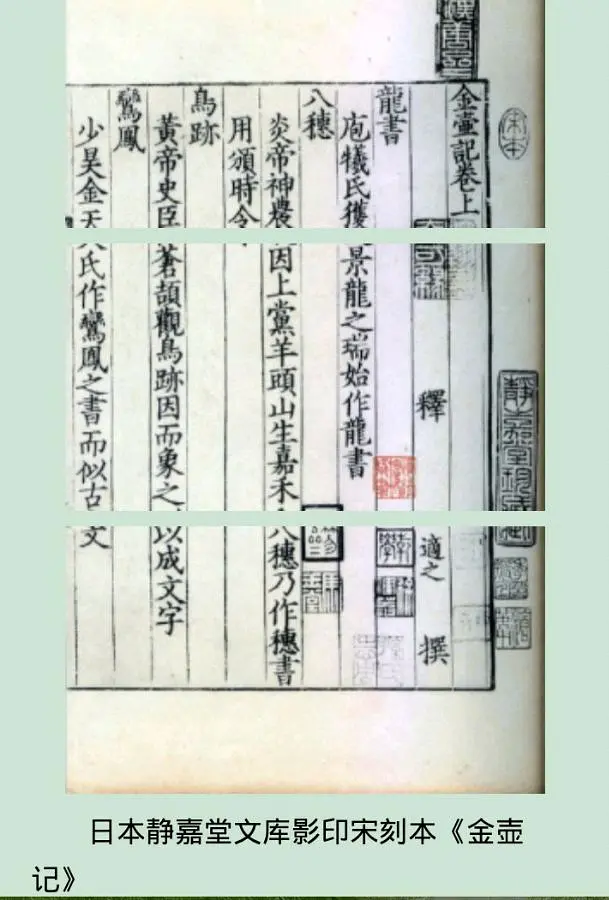 金壺記卷上
釋 適之 撰
龍書
庖犧氏獲景龍之瑞始作龍書
八穗
炎帝神農因上黨羊頭山生嘉禾八穗乃作穗書
用頒時令
鳥跡
黃帝史臣蒼頡觀鳥跡因而象之以成文字
鸞鳳
少昊金天氏作鸞鳳之書而似古文
宋本
靜嘉堂珍藏
日本静嘉堂文库影印宋刻本《金壶
记》